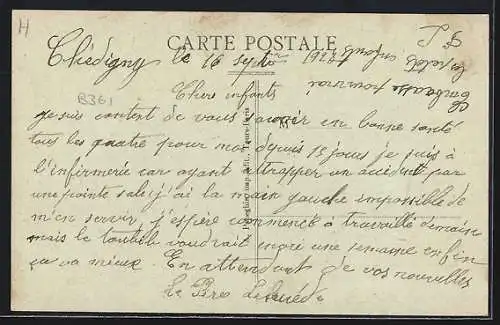 H
CARTE POSTALE
Chédigny le 16 sept 1928
B361
Chers enfants
je suis content de vous savoir en bonne santé
M
tous les quatre pour moi depuis 15 jours je suis à
l'infirmerie car ayant attrapper un accident par
une pointe sale j'ai la main gauche impossible de
m'en servir, j'espère commencé à travaillé demain
mais le toubib voudrait encore une semaine enfin
ça va mieux. En attendant de vos nouvelles